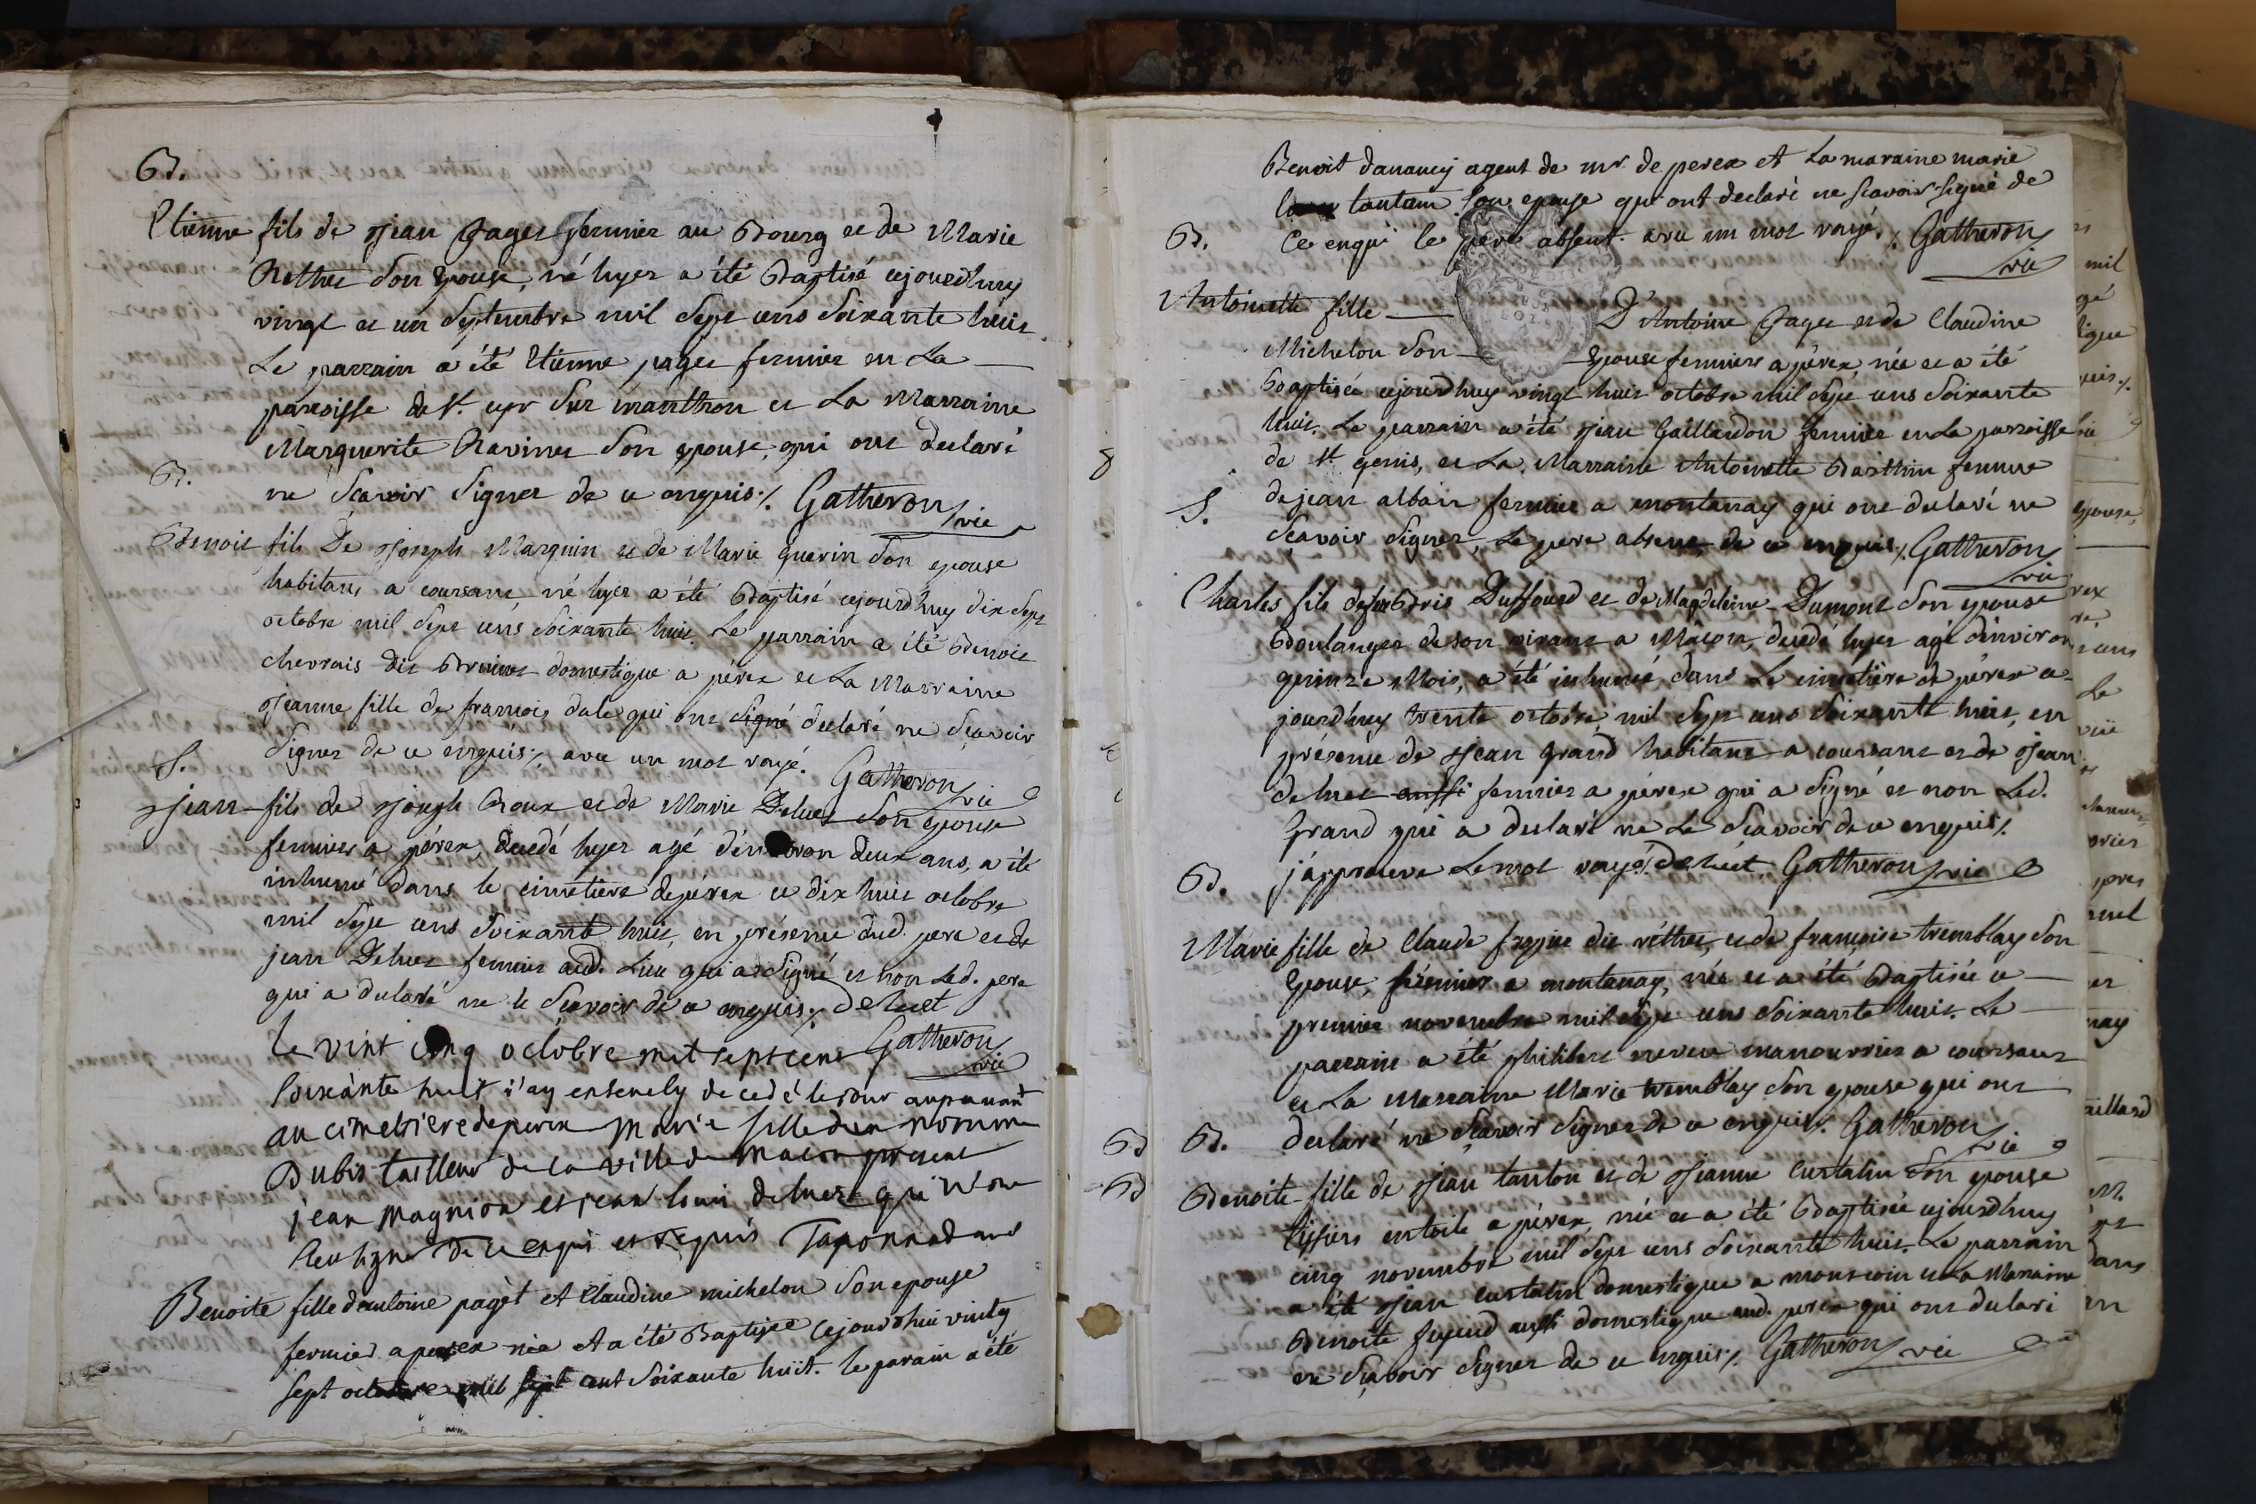 B.
Etienne fils de Jean Pages fermier au Bourg et de Marie
Rethes Son Epouse, né hyer a été Baptisé cejourdhuy
vingt et un Septembre mil Sept cens Soixante huit
Le parrain a été Etienne pages fermier en La
paroisse de St. cyr Sur manthon et La Marraine
Marguerite Ravinet Son epouse, qui ont declaré
ne Scavoir Signer de ce enquis ./. Gatheron
vic
B.
Benoit fils De Joseph Marguin et de Marie guerin Son epouse
habitans a coursans, né hyer a été Baptisé cejourdhuy dix Sept
octobre mil Sept cens Soixante huit. Le parrain a été Benoit
chevrais dit domestique a pérex et La Marraine
Jeanne fille de francois dale qui ont Signé declaré ne Scavoir
Signer de ce enquis ./. avec un mot rayé. Gatheron
vic
S.
Jean fils de Joseph Roux et de Marie Deluez Son epouse
fermiers a pérex, decedé hyer agé d'environ deux ans, a été
inhumé dans le cimetiere de pérex ce dix huit octobre
mil Sept cens Soixante huit, en présence dud. pere et de
jean Deluez fermier aud. Lieu qui a Signé et non Led. pere
qui a declaré ne le Scavoir de ce enquis ./. deluet
Gatheron
vic
le vint cinq octobre mil sept cens
soixante huit j'ay ensevely decedé le jour auparavant
au cimetiere de perex Marie fille d'un nomme
Dubis tailleur de la ville de Macon present
jean Magnion et jean loui deluez qui n'ont
Sceu signer De ce enqui et requis Taponnad
Benoite fille d'antoine pagèt et Claudine michelon Son epouse
fermier a perex née et a été Baptisée cejourdhui vintg
sept octobre mil sept cent Soixante huit. le parain a été
Benoit dananci agent de mr. de perex et La maraine marie
tantum Son epouse qui ont declaré ne scavoir signé de
Ce enqui le pere absent. avec un mot rayé ./. Gatheron
vic
B.
Antoinette fille D'Antoine Pages et de Claudine
Michelon Son Epouse fermiers a pérex, née et a été
Baptisée cejourdhuy vingt huit octobre mil Sept cens Soixante
huit. Le parrain a été Jean Gaillardon fermier en La parroisse
de St. genis, et La Marraine Antoinette Barthin femme
de jean alban fermier a montanay qui ont declaré ne
Scavoir Signer, Le pere absent de ce enquis ./. Gatheron
vic
S.
Charles fils de Bris Duffourd et de Magdeleine Dumont Son epouse
Boulanger de son vivant a Mâcon, decedé hyer agé d'environ
quinze Mois, a été inhumé dans Le cimetiere de pérex ce-
jourdhuy trente octobre mil Sept cens Soixante huit, en
présence de Jean grand habitant a coursans et de Jean
deluez aussi fermier a pérex qui a Signé et non Led.
grand qui a declaré ne Le Scavoir de ce enquis ./.
j'approuve Le mot rayé ./. deluet Gatheron vic
B.
Marie fille de Claude dit réthes, et de françoise tremblay Son
Epouse, fermier a montanay, née et a été Baptisée ce
premier novembre mil Sept cens Soixante huit. Le
parrain a été philibert neveu manouvrier a coursans
et La Marraine Marie tremblay Son epouse qui ont
declaré ne Scavoir Signer de ce enquis ./. Gatheron
vic
B.
Benoite fille de Jean tanton et de Jeanne Curtalin Son epouse
tissiers en toile a pérex, née et a été Baptisée cejourdhuy
cinq novembre mil Sept cens Soixante huit. Le parrain
a été Jean Curtalin domestique a moncoin et La Marraine
Benoite aussi domestique aud. perex qui ont declaré
ne Scavoir Signer de ce enquis ./. Gatheron vic